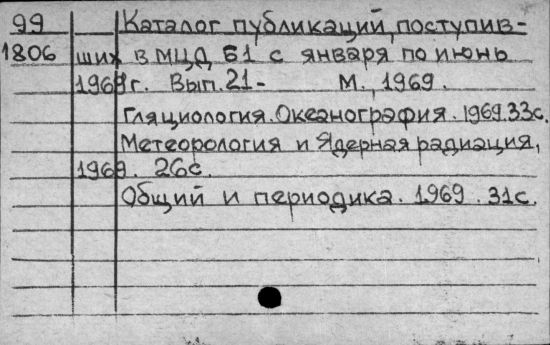 99 Каталог публикаций, поступив-
1806 ших в МЦД Б1 с января по июнь
1969 г. Вып. 21- М., 1969.
Гляциология. Океанография. 1969. 33с.
Метеорология и Ядерная радиация,
1969. 26с.
Общий и периодика. 1969. 31с.